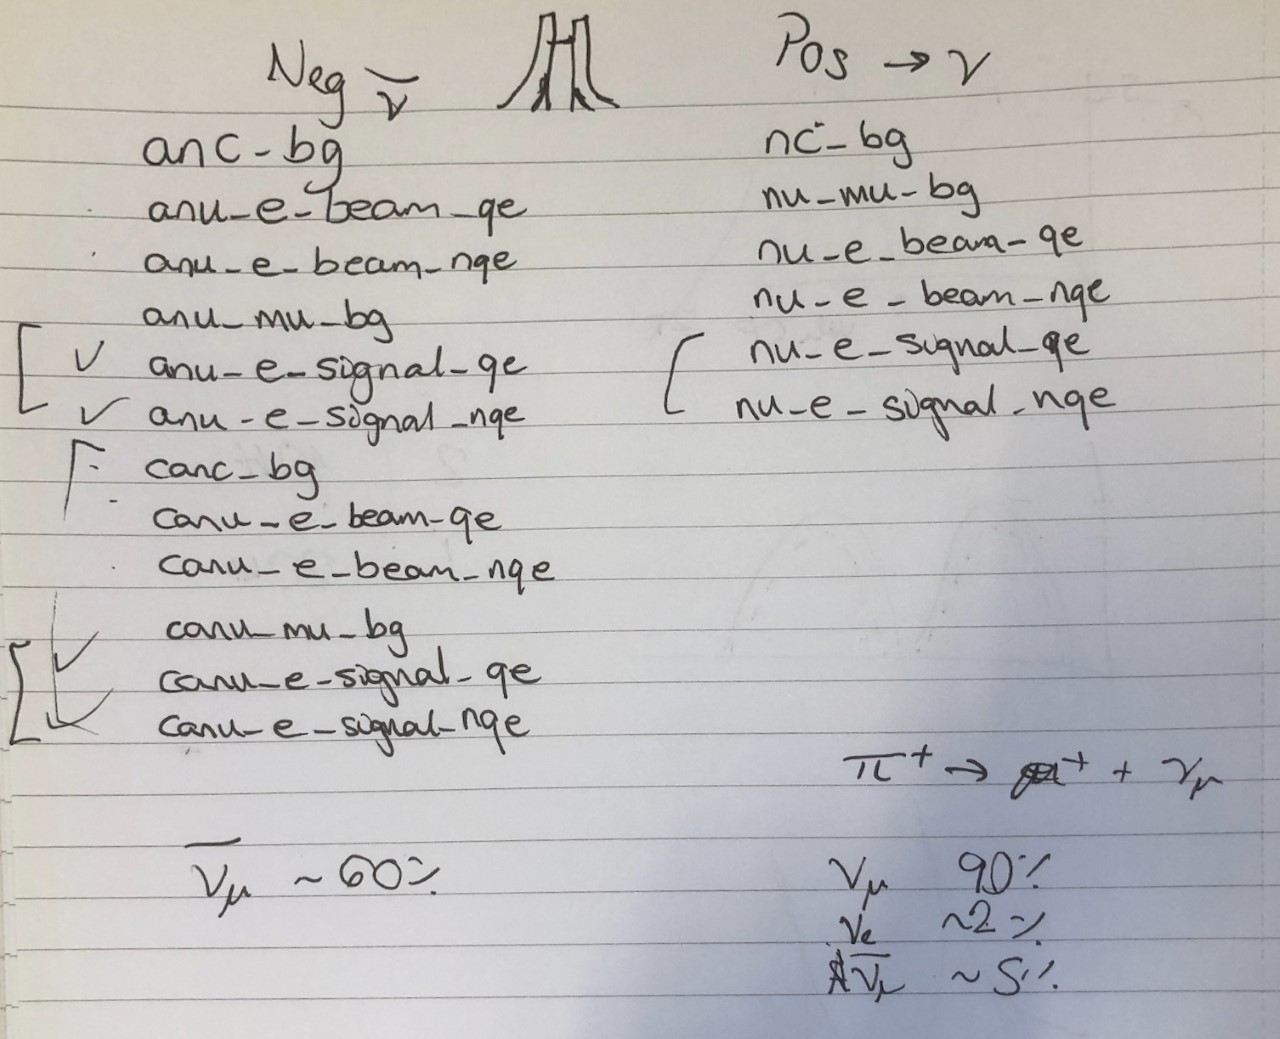 Neg ν̄
anc-bg
anu-e-beam-qe
anu-e-beam-nqe
anu-mu-bg
anu-e-signal-qe
anu-e-signal-nqe
canc-bg
canu-e-beam-qe
canu-e-beam-nqe
canu-mu-bg
canu-e-signal-qe
canu-e-signal-nqe
ν̄μ ~60%
Pos → ν
nc-bg
nu-mu-bg
nu-e-beam-qe
nu-e-beam-nqe
nu-e-signal-qe
nu-e-signal-nqe
π⁺ → μ⁺ + νμ
νμ 90%
νe ~2%
ν̄μ ~5%